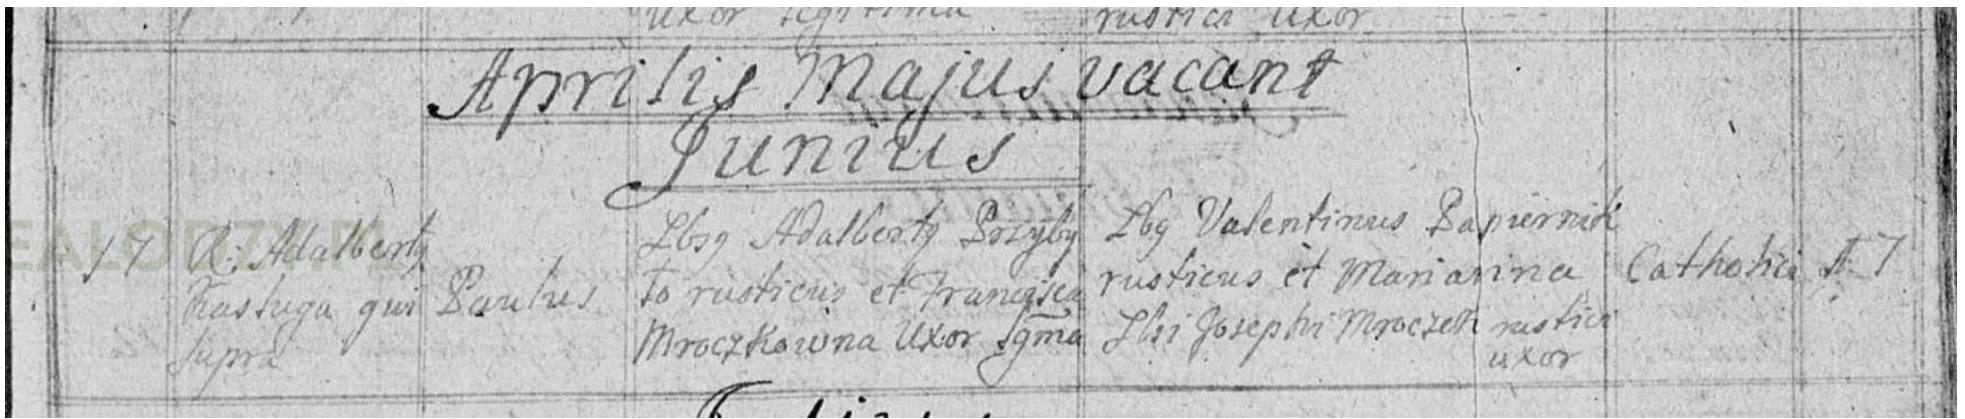 uxor legitima
rustici uxor
Aprilis Majus vacant
Junius
17
R: Adalbertq
Kasluga qui
supra
Paulus
Lbsq Adalbertq Przyby
to rusticus et Francisca
Mroczkowna Uxor Lgma
Lbq Valentinus Papiernik
rusticus et Marianna
Lbsi Josephi Mroczek rustici
uxor
Catholici
7
EALODZY.PL